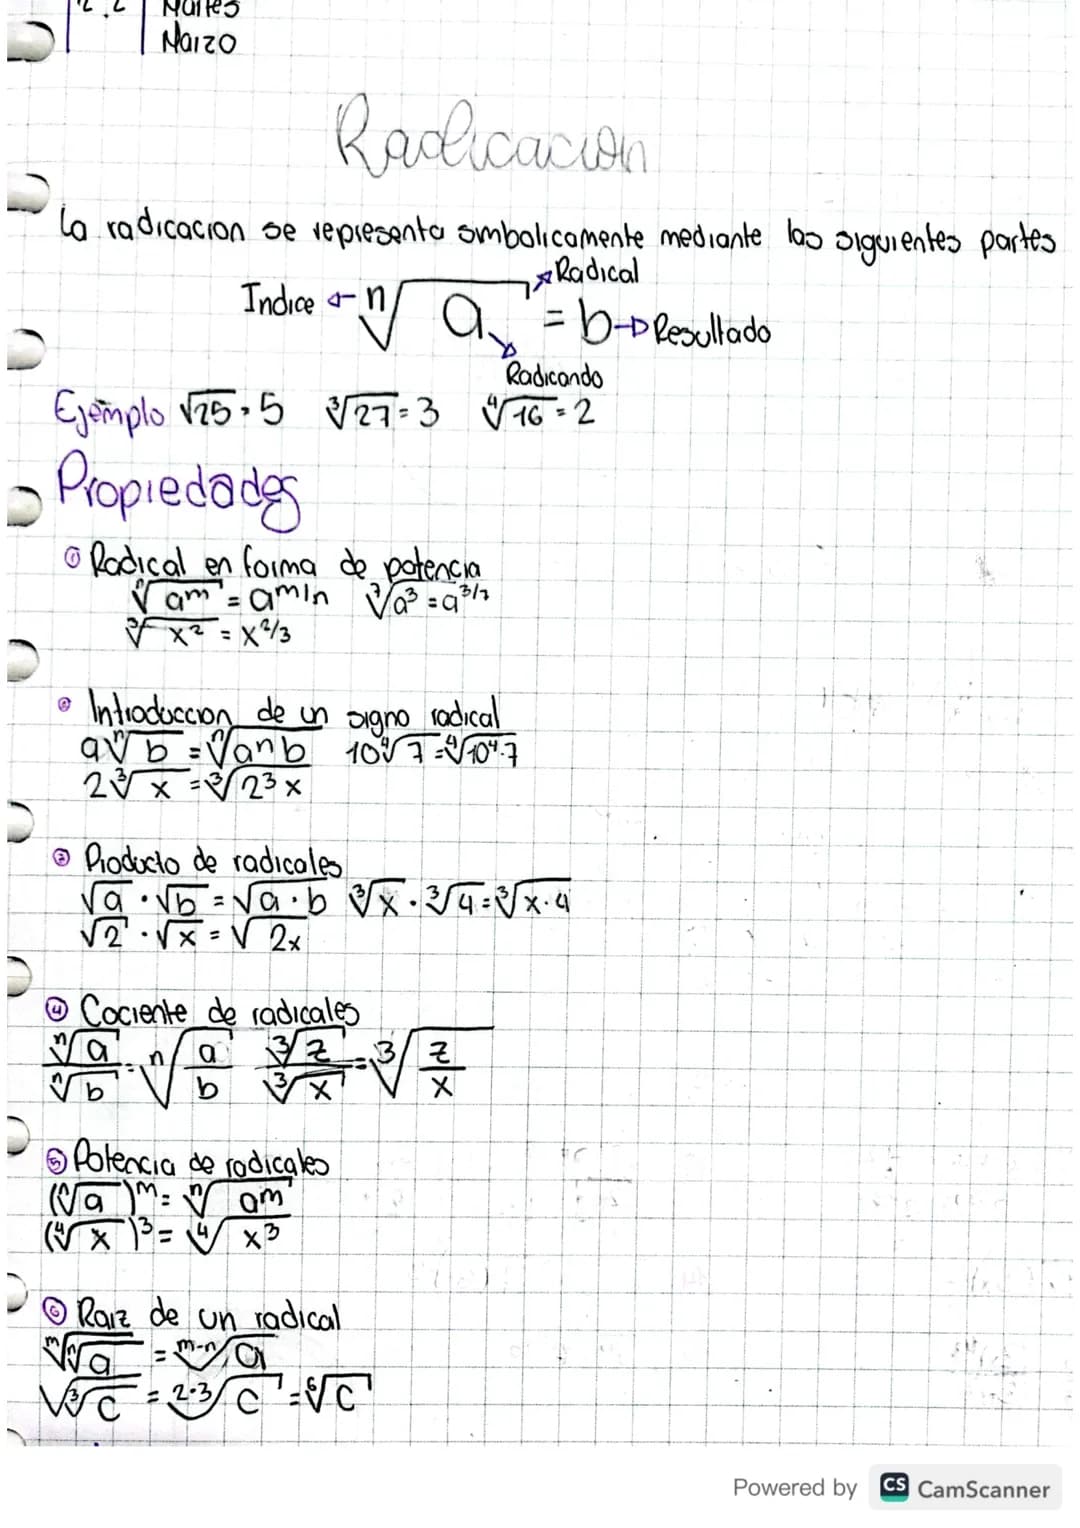 Martes
Marzo
Radicacion
la radicacion se representa simbolicamente mediante las siguientes partes
Radical
Indice ← ⁿ√a = b → Resultado
Radicando
Ejemplo √25 = 5 ³√27 = 3 ⁴√16 = 2
Propiedades
① Radical en forma de potencia
ⁿ√am = am/n ⁷√a³ = a^3/7
³√x² = x^2/3
② Introduccion de un signo radical
aⁿ√b = ⁿ√anb 10⁴√7 = ⁴√10⁴·7
2³√x = ³√2³x
③ Producto de radicales
√a · √b = √a·b ³√x · ³√4 = ³√x·4
√2 · √x = √2x
④ Cociente de radicales
ⁿ√a / ⁿ√b = ⁿ√a/b ³√z / ³√x = ³√z/x
⑤ Potencia de radicales
(ⁿ√a)^m = ⁿ√am
(⁴√x)³ = ⁴√x³
⑥ Raiz de un radical
ᵐ√ⁿ√a = ᵐ⁻ⁿ√a
√³√c = ²·³√c = ⁶√c
Powered by CS CamScanner